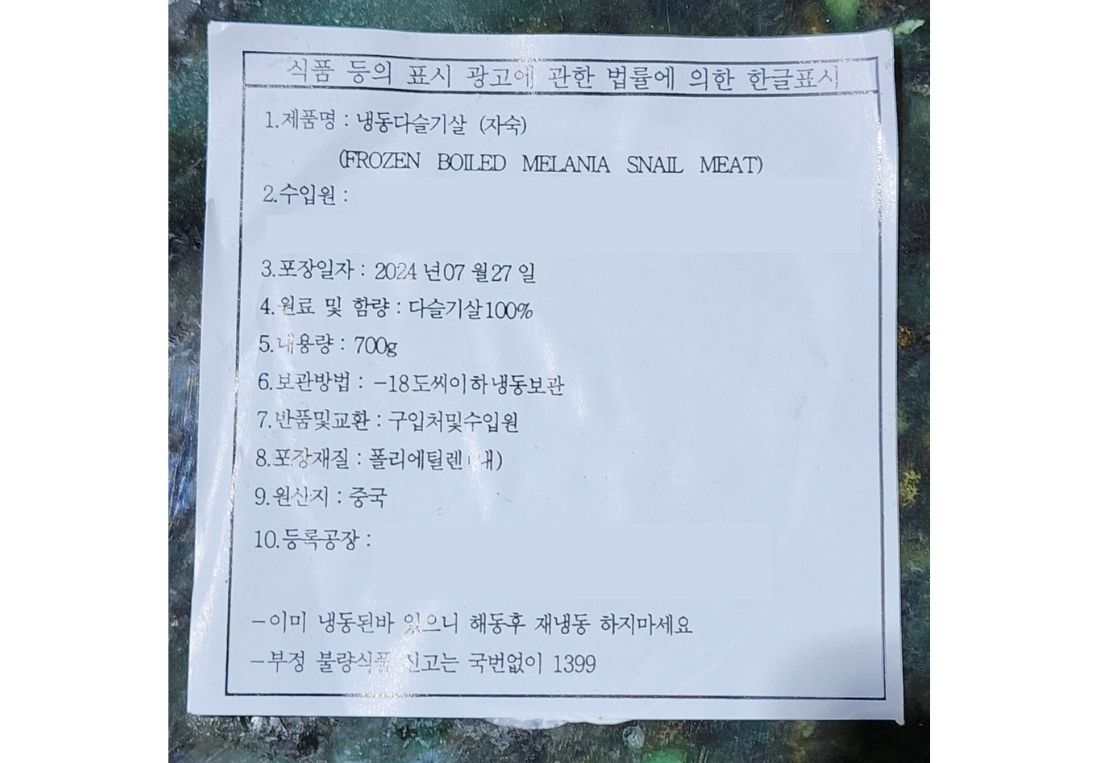 식품 등의 표시 광고에 관한 법률에 의한 한글표시
1.제품명 : 냉동다슬기살 (자숙)
(FROZEN BOILED MELANIA SNAIL MEAT)
2.수입원 :
3.포장일자 : 2024년07월27일
4.원료 및 함량 : 다슬기살100%
5.내용량 : 700g
6.보관방법 : -18도씨이하냉동보관
7.반품및교환 : 구입처및수입원
8.포장재질 : 폴리에틸렌(내)
9.원산지 : 중국
10.등록공장 :
-이미 냉동된바 있으니 해동후 재냉동 하지마세요
-부정 불량식품 신고는 국번없이 1399